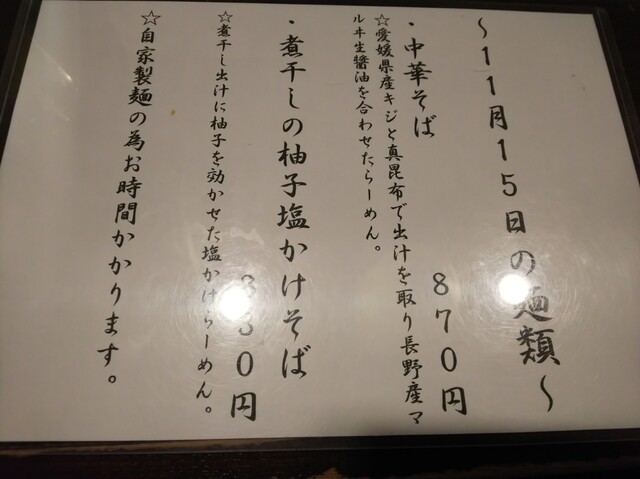 ～11月15日の麺類～
・中華そば
870円
☆愛媛県産キジと真昆布で出汁を取り長野産マ
ルヰ生醤油を合わせたらーめん。
・煮干しの柚子塩かけそば
830円
☆煮干し出汁に柚子を効かせた塩かけらーめん。
☆自家製麺の為お時間かかります。